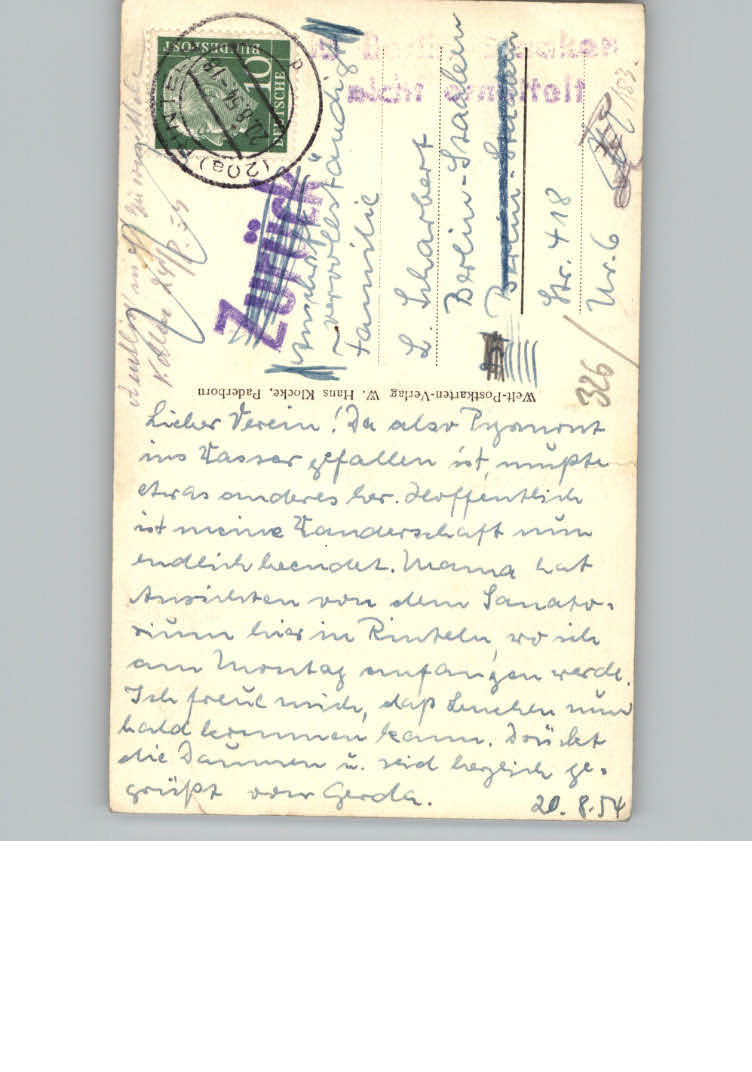 Lieber Verein! Da also Pyrmont
ins Wasser gefallen ist, mußte
etwas anderes her. Hoffentlich
ist meine Wanderschaft nun
endlich beendet. Mama hat
Ansichten von dem Sanato-
rium hier in Rinteln, wo ich
am Montag anfangen werde.
Ich freue mich, daß Lenchen nun
bald kommen kann. Drückt
die Daumen u. seid herzlich ge-
grüßt von Gerda.
20. 8. 54
Welt-Postkarten-Verlag W. Hans Klocke, Paderborn
Zurück
Anschrift
vervollständigt
Familie
L. Scharbert
Berlin-Staaken
Berlin-Staaken
Str. 418
Nr. 6
326
183.
DEUTSCHE
BUNDESPOST
10
(20a) RINTELN
20.8.54